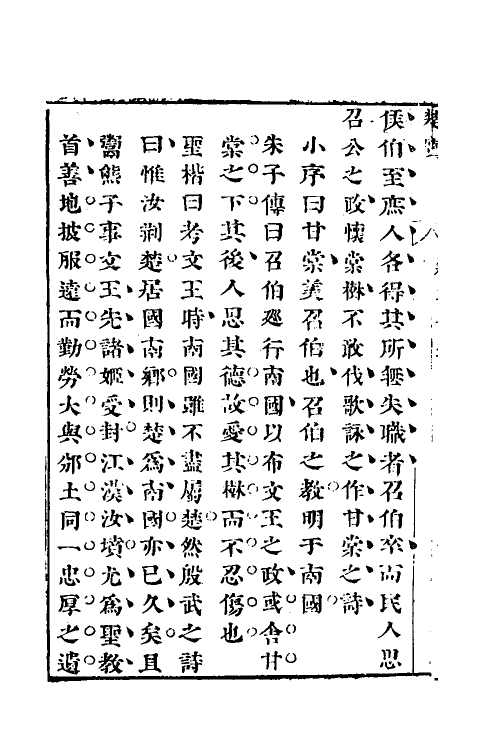 侯伯至庶人各得其所無失職者召伯卒而民人思
召公之政懷棠樹不敢伐歌詠之作甘棠之詩
小序曰甘棠美召伯也召伯之教明于南國
朱子傳曰召伯廵行南國以布文王之政或舍甘
棠之下其後人思其德故愛其樹而不忍傷也
聖楷曰考文王時南國雖不盡屬楚然殷武之詩
曰惟汝荆楚居國南鄉則楚爲南國亦已久矣且
鬻熊子事文王先諸姬受封江漢汝墳尤爲聖教
首善地披服遠而勤勞大與邠土同一忠厚之遺